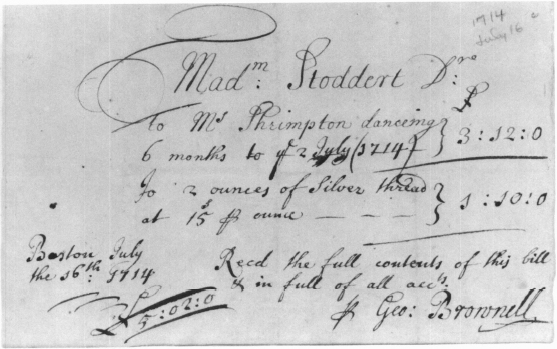 1714
July 16
Madm: Stoddert Dr:
£
to Ms Shrimpton danceing } 3:12:0
6 months to ye 2 July (1714)
To 2 ounces of Silver thread } 1:10:0
at 15s ⅌ ounce — — —
Boston July
the 16th: 1714
Recd the full contents of this bill
& in full of all accts:
£5:02:0
⅌ Geo: Brownell